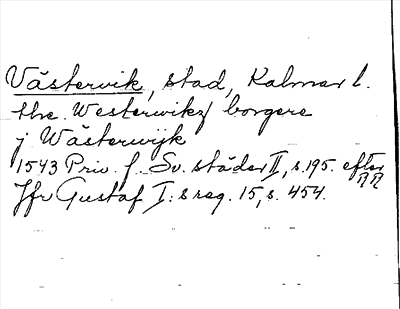 Västervik, stad, Kalmar l.
the Westerwikz borgere
j Wästerwijk
1543 Priv. f. Sv. städer II, s. 195. efter RR
Jfr Gustaf I:s reg. 15, s. 454.